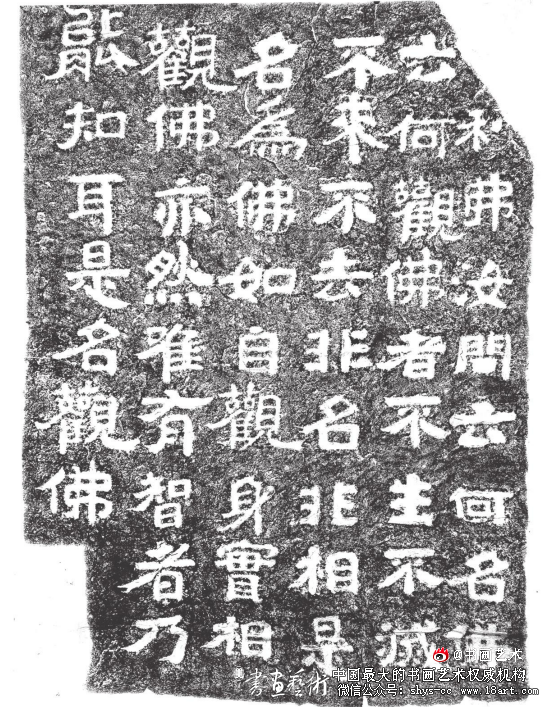 利佛汝問云何名佛
云何觀佛者不生不滅
不來不去非名非相是
名為佛如自觀身實相
觀佛亦然唯有智者乃
能知耳是名觀佛
@书画艺术
書畫藝術
中国最大的书画艺术权威机构
微信公众号：shys-cc www.18art.com